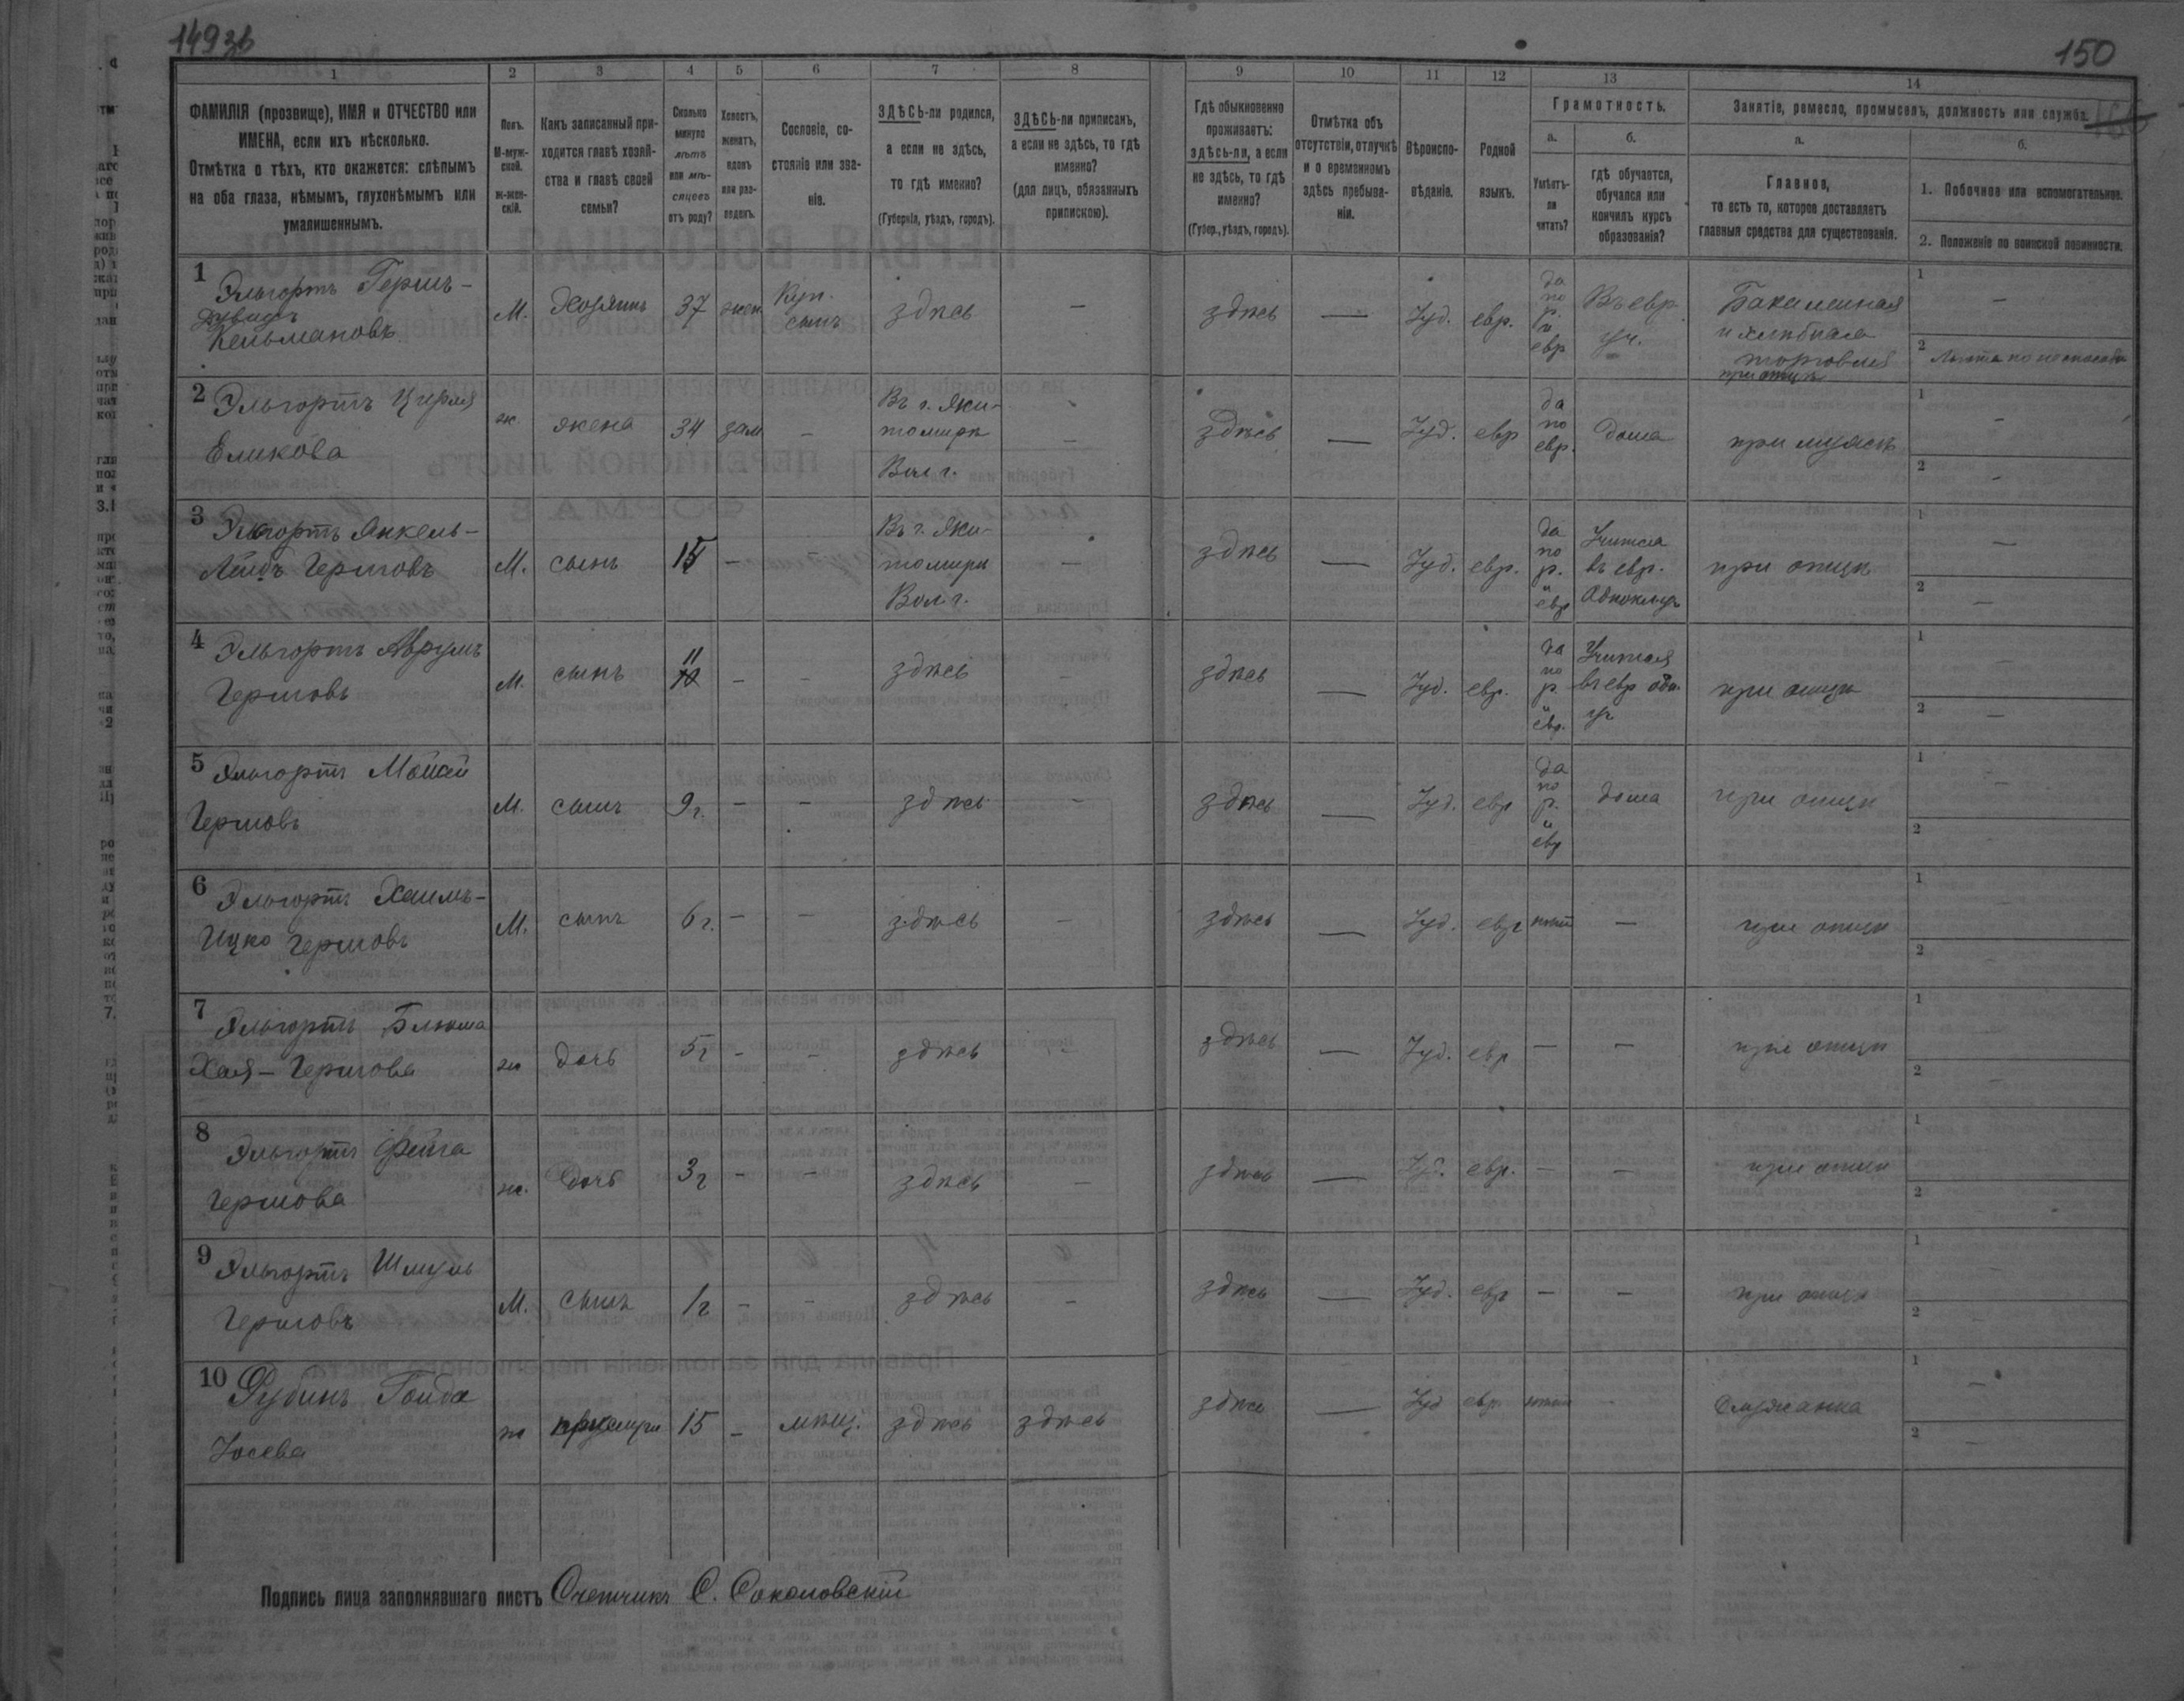 149зв
150
1 2 3 4 5 6 7 8 9 10 11 12 13 14
ФАМИЛІЯ (прозвище), ИМЯ и ОТЧЕСТВО или
ИМЕНА, если ихъ нѣсколько.
Отмѣтка о тѣхъ, кто окажется: слѣпымъ
на оба глаза, нѣмымъ, глухонѣмымъ или
умалишеннымъ.
Полъ.
М-муж-
ской.
ж-жен-
скій.
Какъ записанный при-
ходится главѣ хозяй-
ства и главѣ своей
семьи?
Сколько
минуло
лѣтъ
или мѣ-
сяцевъ
отъ роду?
Холостъ,
женатъ,
вдовъ
или раз-
веденъ.
Сословіе, со-
стояніе или зва-
ніе.
ЗДѢСЬ-ли родился,
а если не здѣсь,
то гдѣ именно?
(Губернія, уѣздъ, городъ).
ЗДѢСЬ-ли приписанъ,
а если не здѣсь, то гдѣ
именно?
(для лицъ, обязанныхъ
припискою).
Гдѣ обыкновенно
проживаетъ:
здѣсь-ли, а если
не здѣсь, то гдѣ
именно?
(Губер., уѣздъ, городъ).
Отмѣтка объ
отсутствіи, отлучкѣ
и о временномъ
здѣсь пребыва-
ніи.
Вѣроиспо-
вѣданіе.
Родной
языкъ.
Грамотность.
а.
Умѣетъ-
ли
читать?
б.
гдѣ обучается,
обучался или
кончилъ курсъ
образованія?
Занятіе, ремесло, промыселъ, должность или служба.
а.
Главное,
то есть то, которое доставляетъ
главныя средства для существованія.
б.
1. Побочное или вспомогательное.
2. Положеніе по воинской повинности.
1 Эльгортъ Гершъ-
Дувидъ
Кельмановъ
М. Хозяинъ 37 жен. Куп.
сынъ здѣсь — здѣсь — Іуд. евр.
да
по
р.
и
евр
Въ евр.
уч.
Бакалейная
и хлѣбная
торговля
при отцѣ
1 —
2 Льгота по неспособн
2 Эльгортъ Цирля
Еликова
ж. жена 34 зам. —
Въ г. Жи-
томирѣ
Вол г.
— здѣсь — Іуд. евр
да
по
евр.
дома при мужѣ
1 —
2 —
3 Эльгортъ Янкель-
Лейбъ Гершовъ
М. сынъ 15 —
Въ г. Жи-
томирѣ
Вол. г.
— здѣсь — Іуд. евр.
да
по
р.
и
евр
Учится
въ евр.
при отцѣ
1 —
2 —
4 Эльгортъ Аврумъ
Гершовъ
М. сынъ 11 — — здѣсь — здѣсь — Іуд. евр.
да
по
р.
и
евр.
Учится
въ евр
уч
при отцѣ
1 —
2 —
5 Эльгортъ Мойсей
Гершовъ
М. сынъ 9 г. — — здѣсь — здѣсь — Іуд. евр
да
по
р.
и
евр
дома при отцѣ
1 —
2 —
6 Эльгортъ Хаимъ-
Ицко Гершовъ
М. сынъ 6 г. — — здѣсь — здѣсь — Іуд. евр нѣтъ — при отцѣ
1 —
2 —
7 Эльгортъ Блюма
Хая-Гершова
ж дочь 5 г — — здѣсь — здѣсь — Іуд. евр — — при отцѣ
1
2 —
8 Эльгортъ Фейга
Гершова
ж. дочь 3 г — — здѣсь — здѣсь — Іуд. евр. — — при отцѣ
1
2
9 Эльгортъ Шмуль
Гершовъ
М. сынъ 1 г — — здѣсь — здѣсь — Іуд. евр — — при отцѣ
1
2 —
10 Рубинъ Гойда
Іосева
ж 15 — мѣщ. здѣсь здѣсь здѣсь — Іуд евр. нѣтъ - Служанка
1 —
2 —
Подпись лица заполнявшаго листъ Счетчикъ С. Соколовскій